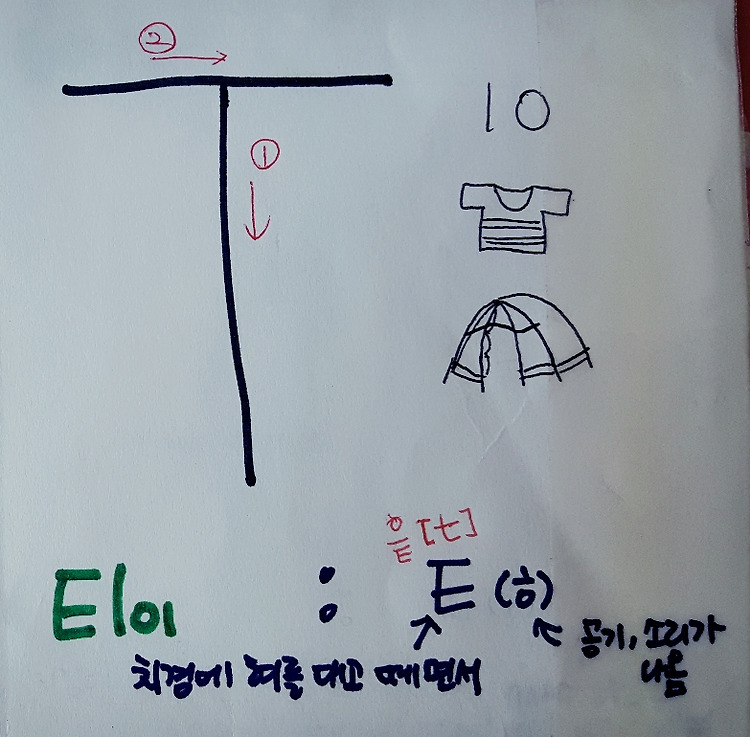 ②
T
①
10
읕 [t]
티이 : ㅌ (흐)
치경에 혀를 대고 떼면서
공기, 소리가
나옴